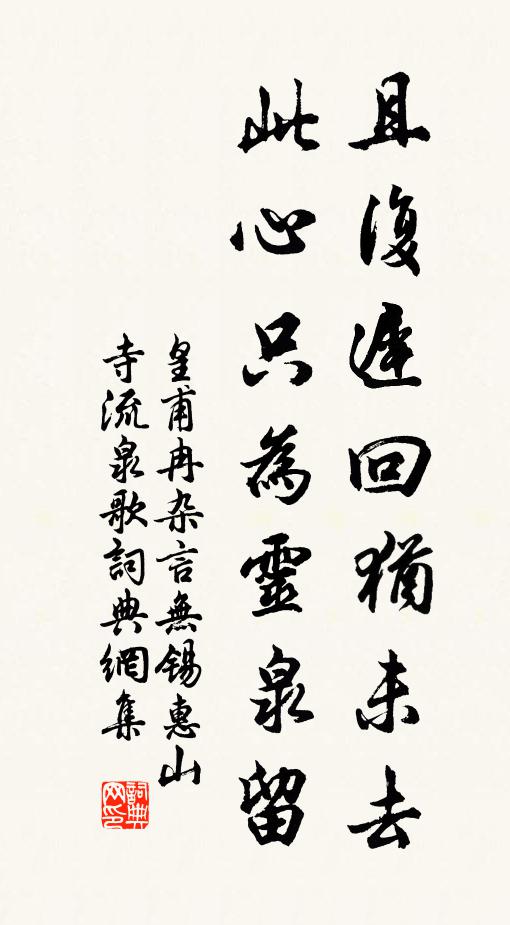 且復遲回猶未去
此心只為靈泉留
皇甫冉杂言無錫惠山
寺流泉歌詞典網集
詞典
网印